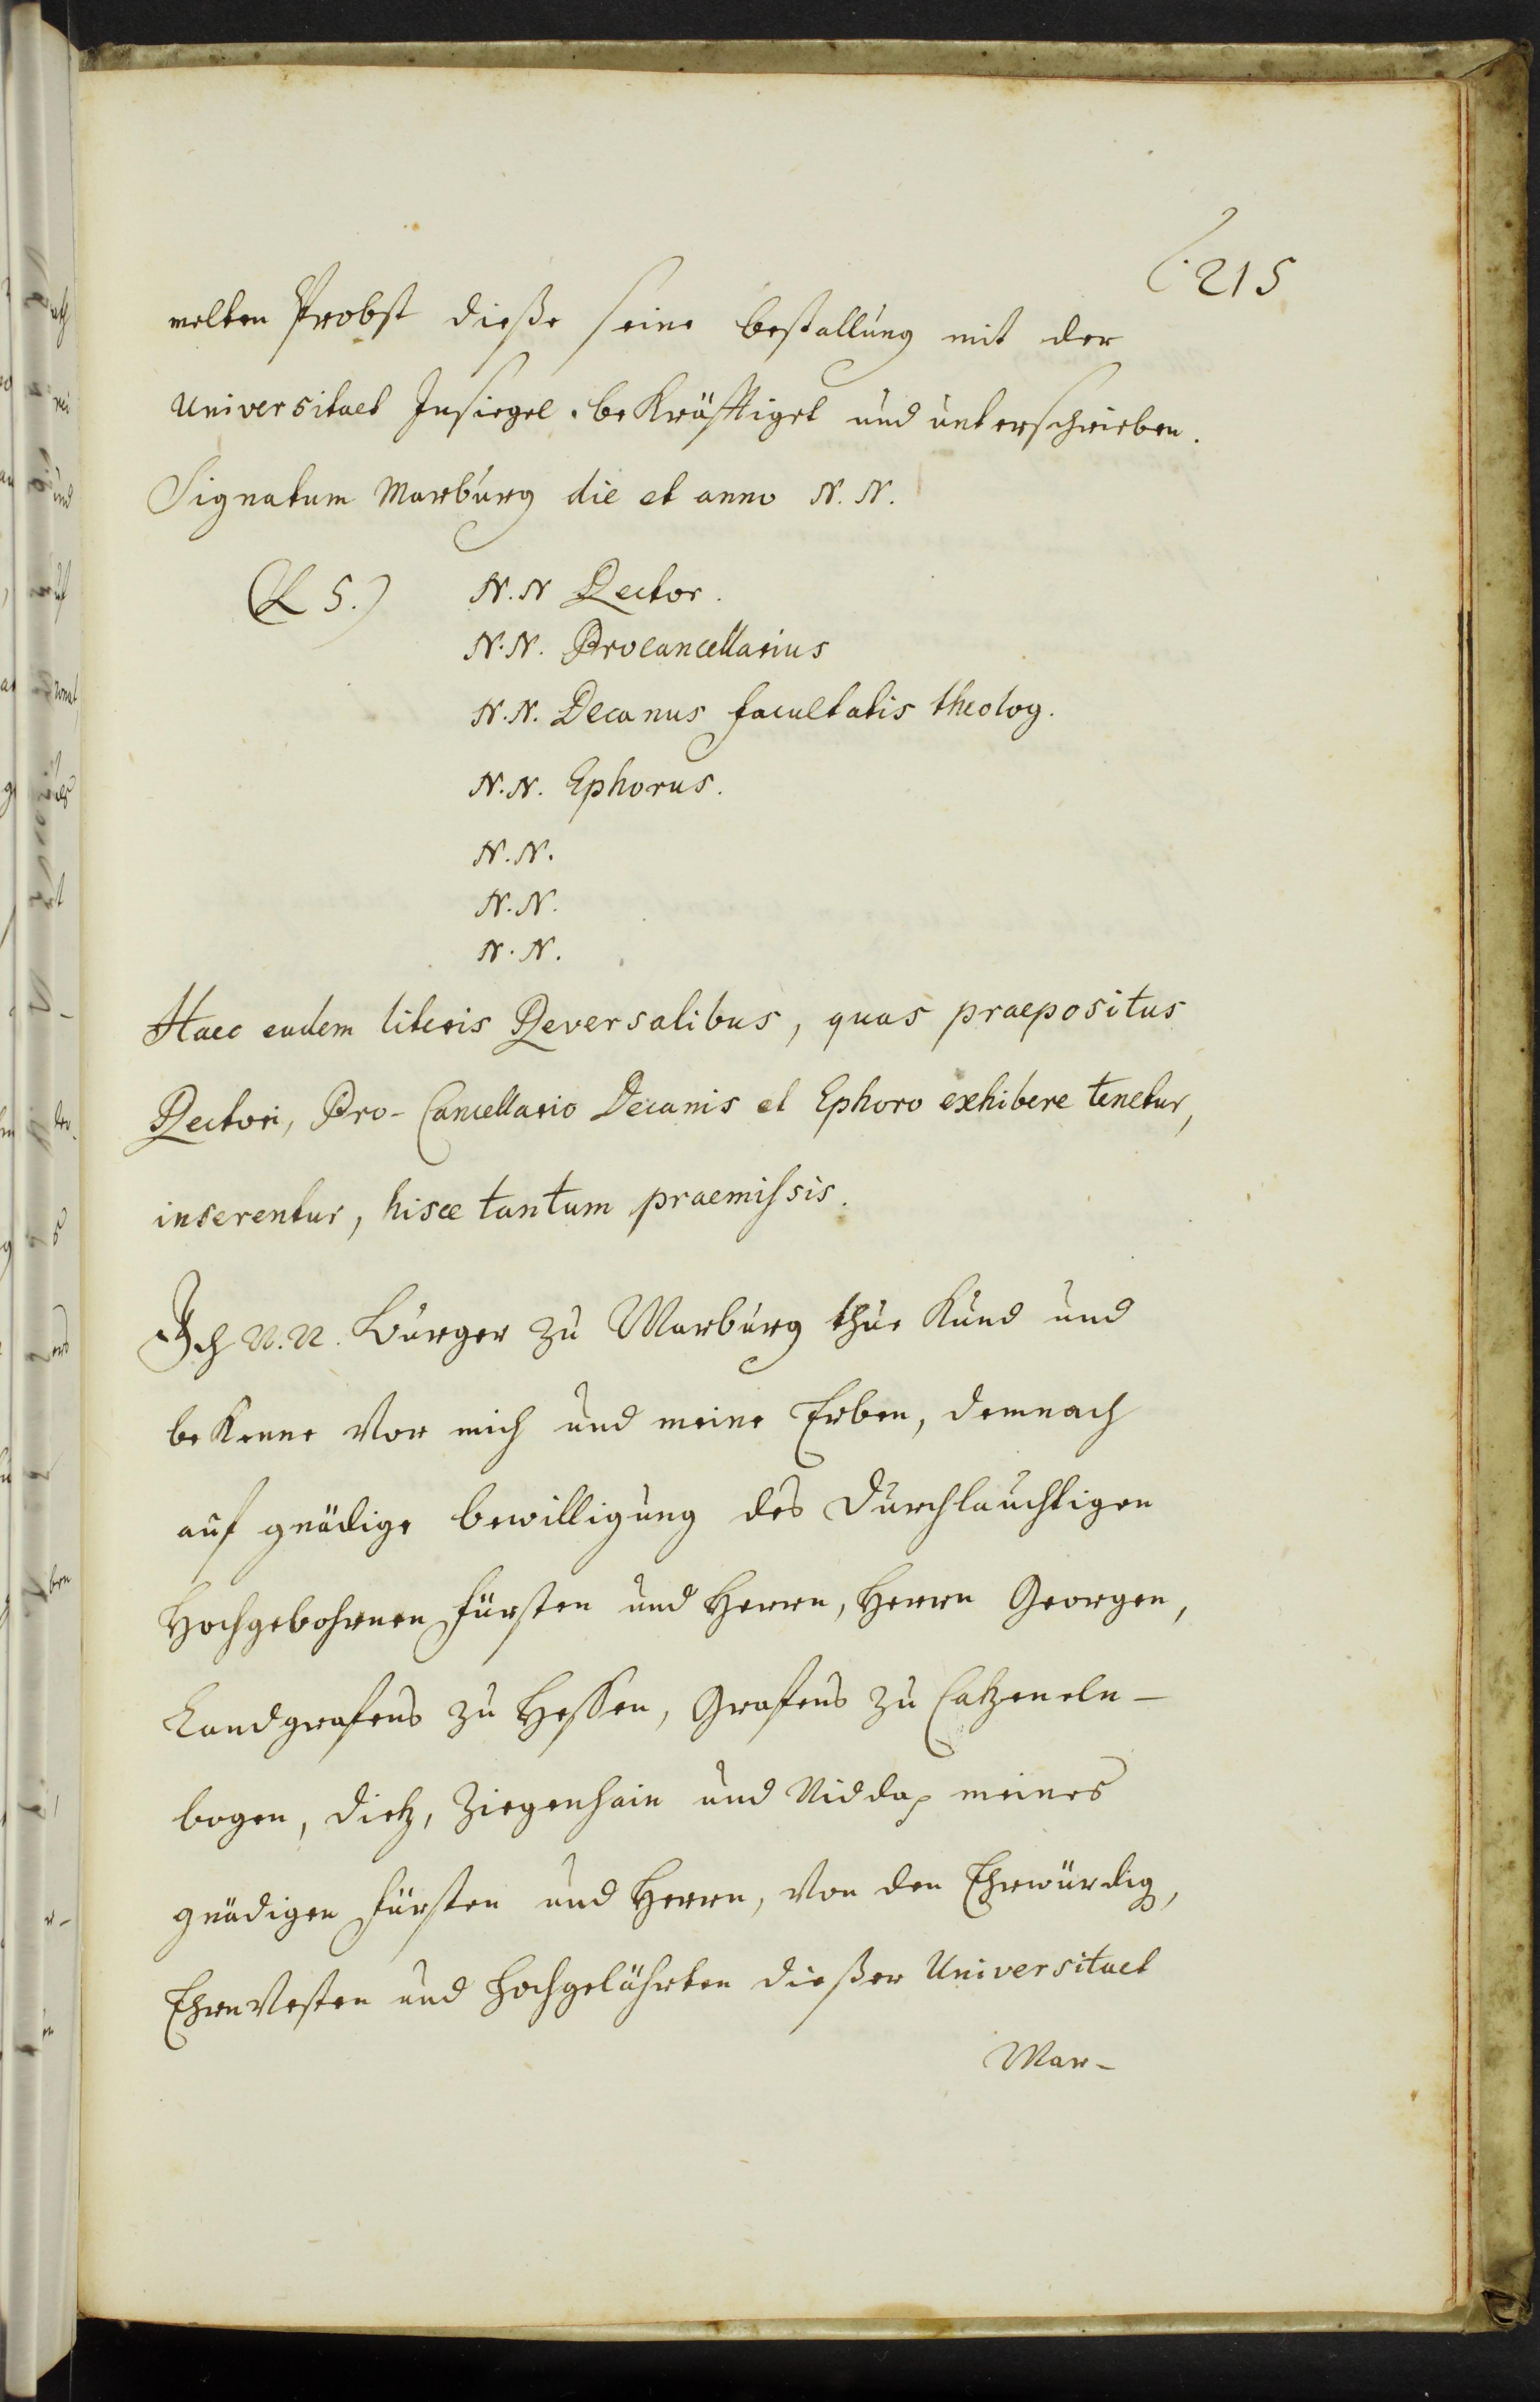 215
melten Probst dieße seine bestallung mit der
Universitaet Insiegel bekräfftiget und unterschrieben.
Signatum Marburg die et anno N. N.
(L S.) N. N Rector.
N. N. Procancellarius
N. N. Decanus facultatis theolog.
N. N. Ephorus.
N. N.
N. N.
N. N.
Haec eadem literis Reversalibus, quas praepositus
Rectori, Pro-Cancellario Decanis et Ephoro exhibere tenetur,
inserentur, hisce tantum praemissis.
Ich N. N. Bürger zu Marburg thue Kund und
bekenne Vor mich und meine Erben, demnach
auf gnädige bewilligung des Durchlauchtigen
Hochgebohrnen Fürsten und Herrn, Herrn Georgen,
Landgrafens zu Hessen, Grafens zu Catzeneln-
bogen, Dietz, Ziegenhain und Nidda meines
gnädigen Fürsten und Herrn, Von den Ehrwürdig,
EhrnVesten und Hochgelährten dießer Universitaet
Mar-